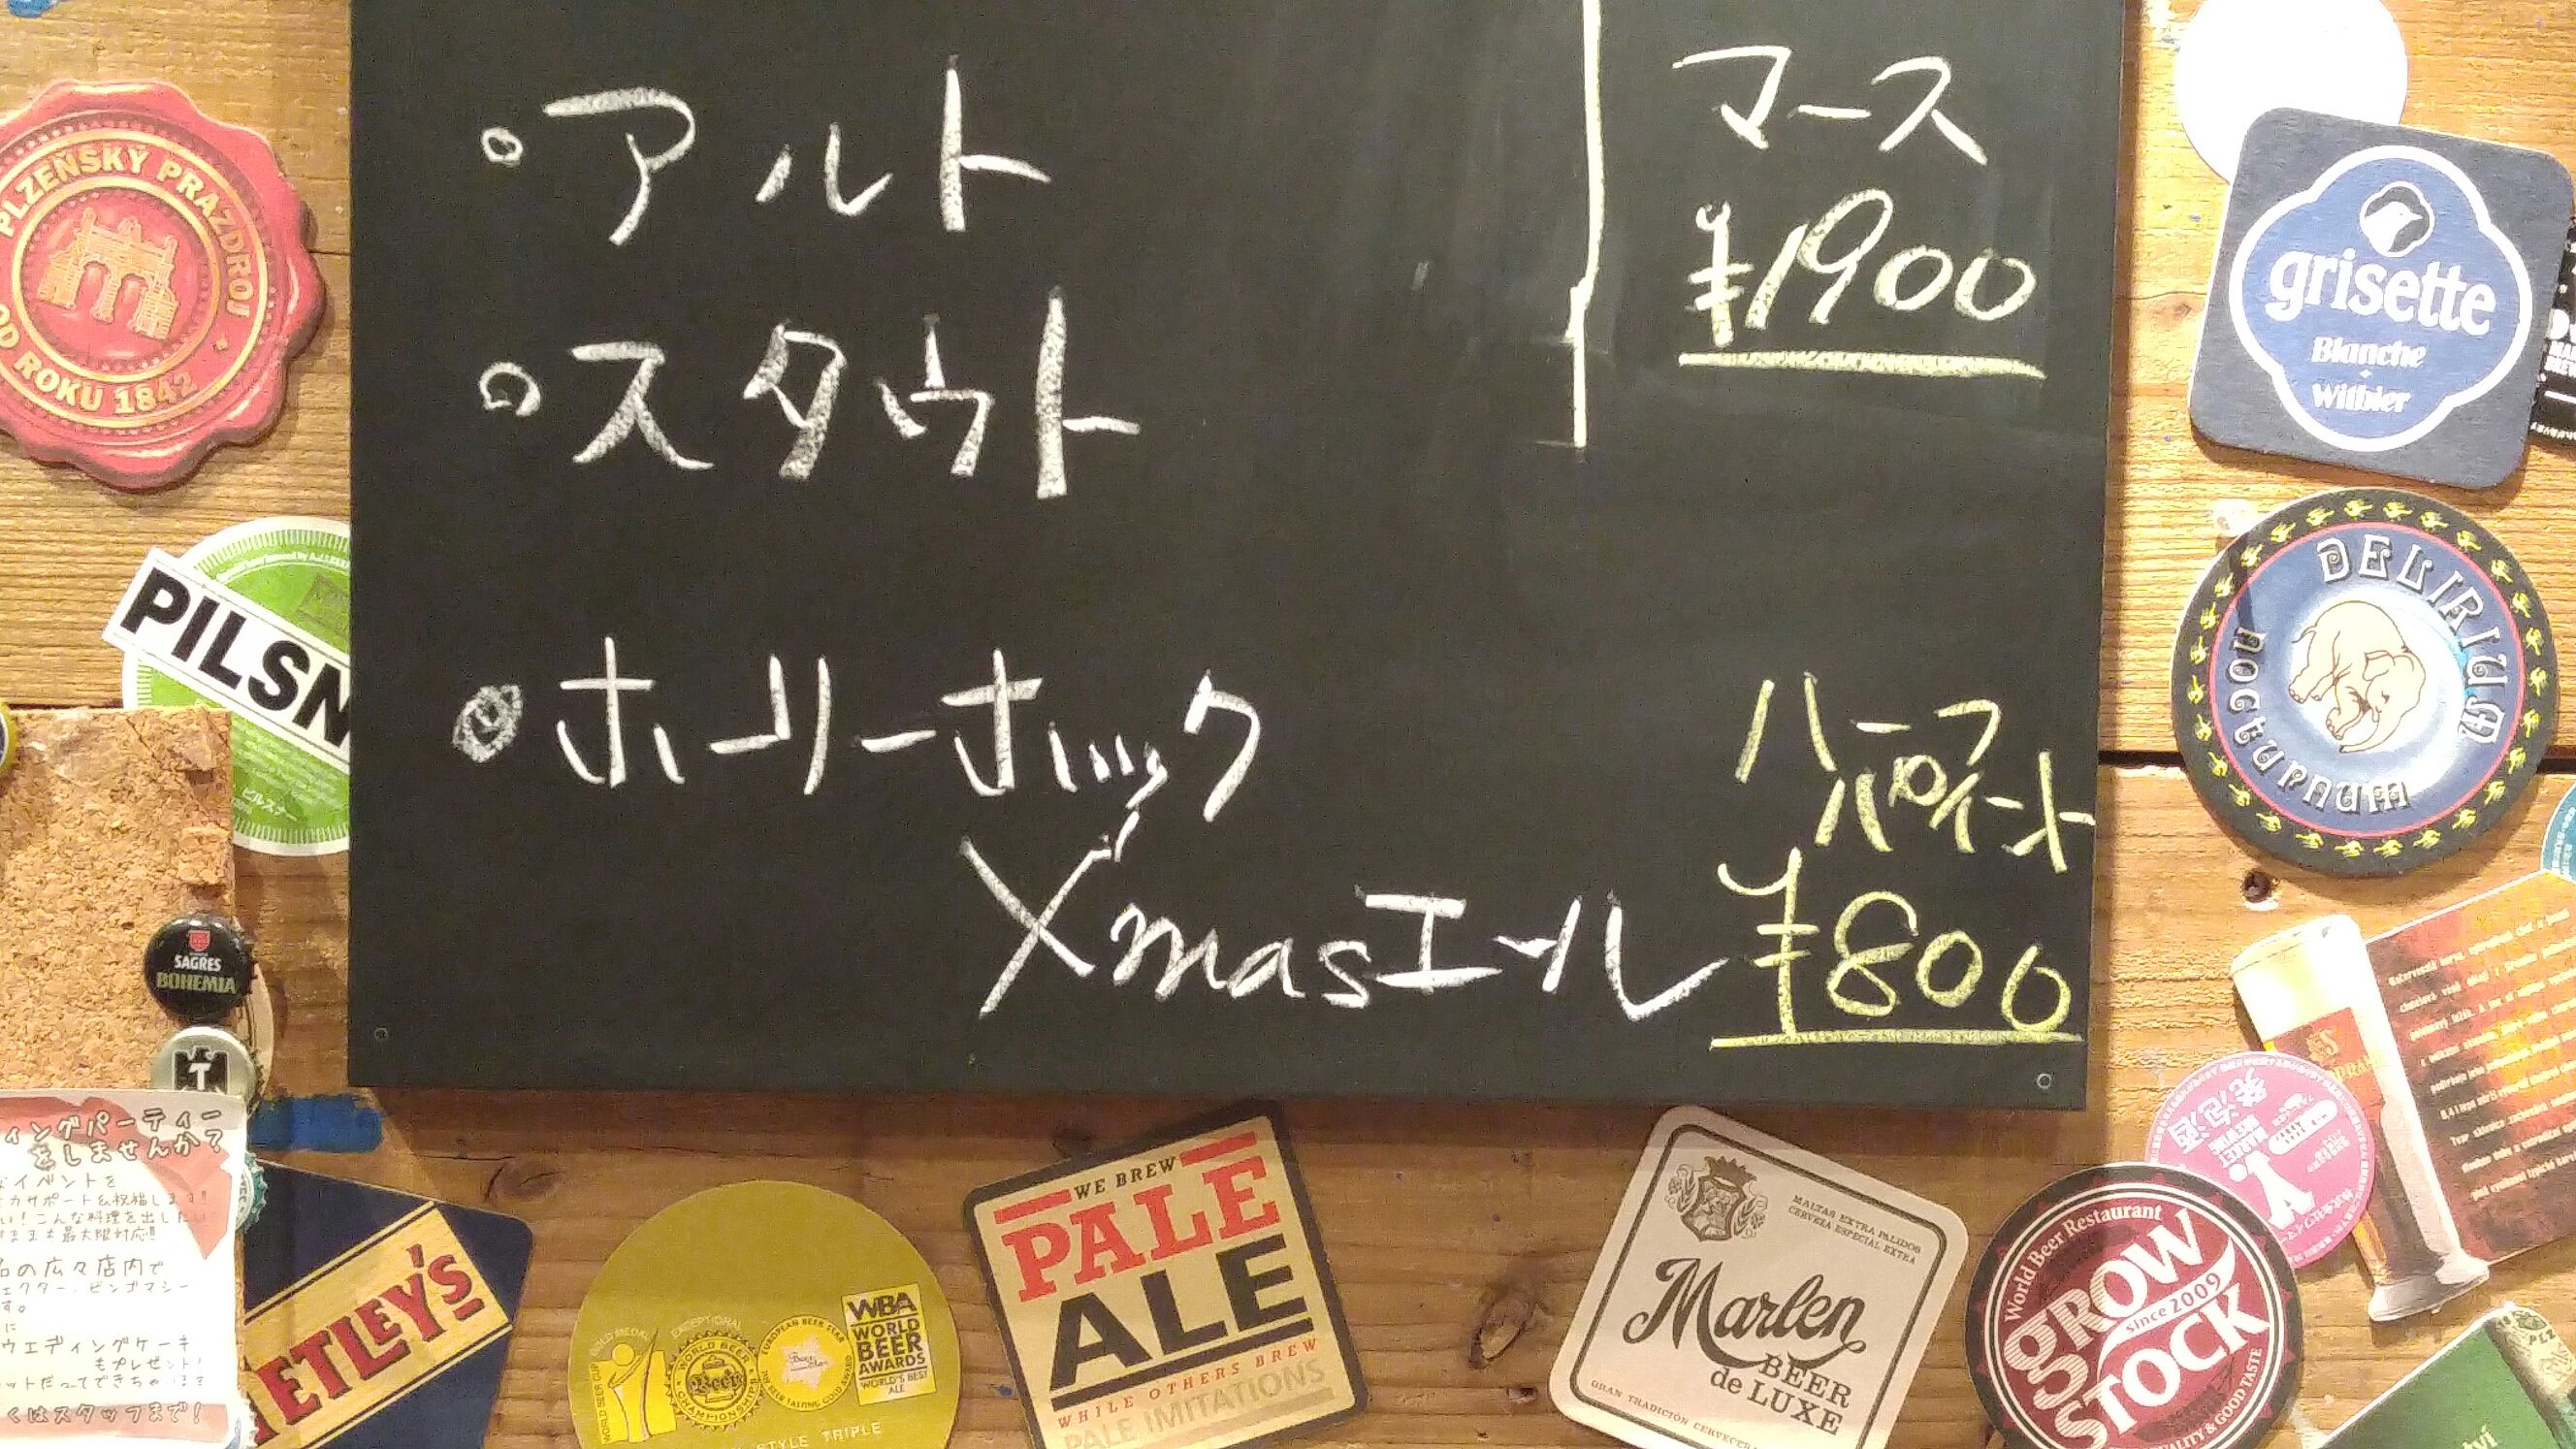 ・アルト
・スタウト
マース
¥1900
・ホーリーホック
Xmasエール
ハーフ
パイント
¥800
PLZEŇSKÝ PRAZDROJ
OD ROKU 1842
PILSN
ピルスナー
SAGRES
BOHEMIA
T
ィングパーティー
をしませんか?
なイベントを
カサポート&祝福します!
い!こんな料理を出したい
ままも最大限対応!!
名の広々店内で
ェクター、ビンゴマシー
す。
に
ウエディングケーキ
もプレゼント!
くはスタッフまで!
ETLEY'S
GOLD MEDAL
WORLD BEER CUP
EXCEPTIONAL
WORLD BEER
CHAMPIONSHIPS
EUROPEAN BEER STAR
WBA
WORLD
BEER
AWARDS
WORLD'S BEST
ALE
STYLE TRIPLE
WE BREW
PALE
ALE
WHILE OTHERS BREW
PALE IMITATIONS
MALTAS EXTRA PALIDOS
CERVEZA ESPECIAL EXTRA
Marlen
BEER
de LUXE
GRAN TRADICIÓN CERVECERA
World Beer Restaurant
GROW
since 2009
STOCK
QUALITY & GOOD TASTE
発泡酒
grisette
Blanche
Witbier
DELIRIUM
NOCTURNUM